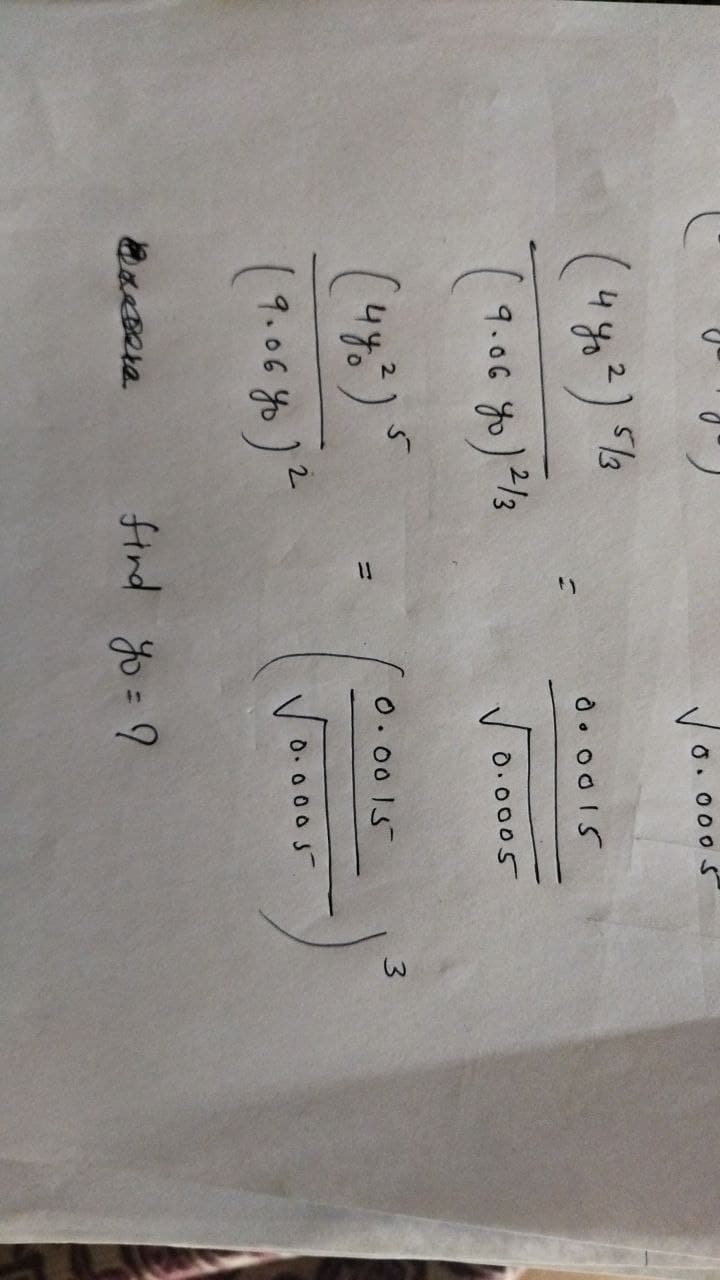 √0.0005
(4y₀²)^5/3 / (9.06 y₀)^2/3 = 0.0015 / √0.0005
(4y₀²)^5 / (9.06 y₀)^2 = (0.0015 / √0.0005)^3
find y₀ = ?